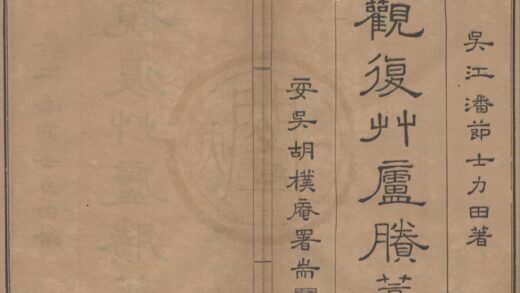 吳江潘節士力田著
觀復艸廬賸
安吳胡樸庵署耑